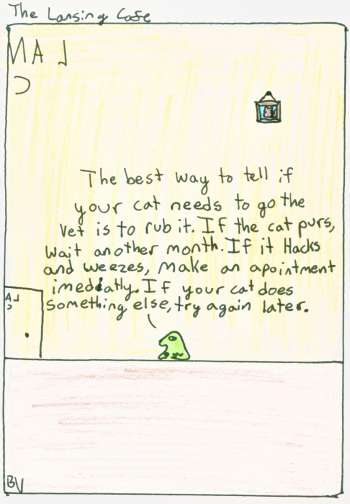 The Lansing Cafe
The best way to tell if
your cat needs to go the
vet is to rub it. If the cat purs,
wait another month. If it Hacks
and weezes, make an apointment
imediatly. If your cat does
something else, try again later.
BV